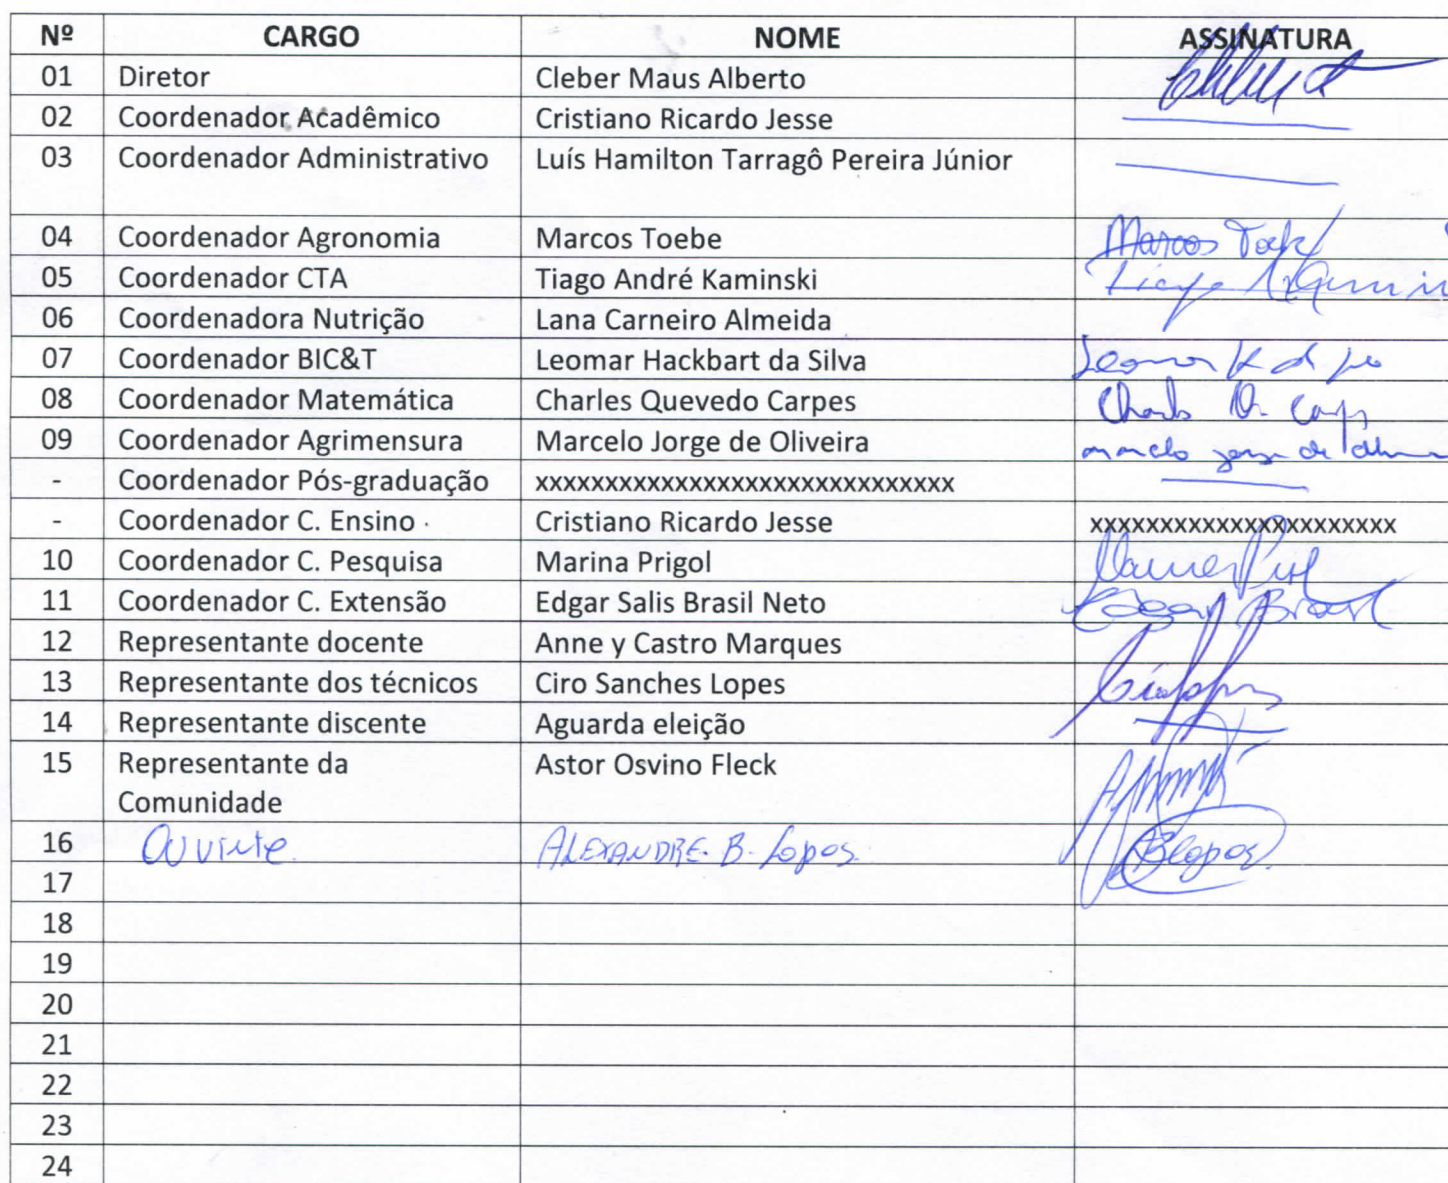 Nº CARGO NOME ASSINATURA
01 Diretor Cleber Maus Alberto
02 Coordenador Acadêmico Cristiano Ricardo Jesse
03 Coordenador Administrativo Luís Hamilton Tarragô Pereira Júnior
04 Coordenador Agronomia Marcos Toebe Marcos
05 Coordenador CTA Tiago André Kaminski
06 Coordenadora Nutrição Lana Carneiro Almeida
07 Coordenador BIC&T Leomar Hackbart da Silva
08 Coordenador Matemática Charles Quevedo Carpes
09 Coordenador Agrimensura Marcelo Jorge de Oliveira
- Coordenador Pós-graduação xxxxxxxxxxxxxxxxxxxxxxxxxxxxxx
- Coordenador C. Ensino Cristiano Ricardo Jesse xxxxxxxxxxxxxxxxxxxxxx
10 Coordenador C. Pesquisa Marina Prigol
11 Coordenador C. Extensão Edgar Salis Brasil Neto Edgar Brasil
12 Representante docente Anne y Castro Marques
13 Representante dos técnicos Ciro Sanches Lopes
14 Representante discente Aguarda eleição
15 Representante da Astor Osvino Fleck
Comunidade
16 Ouvinte ALEXANDRE B. Lopes. Blopes
17
18
19
20
21
22
23
24